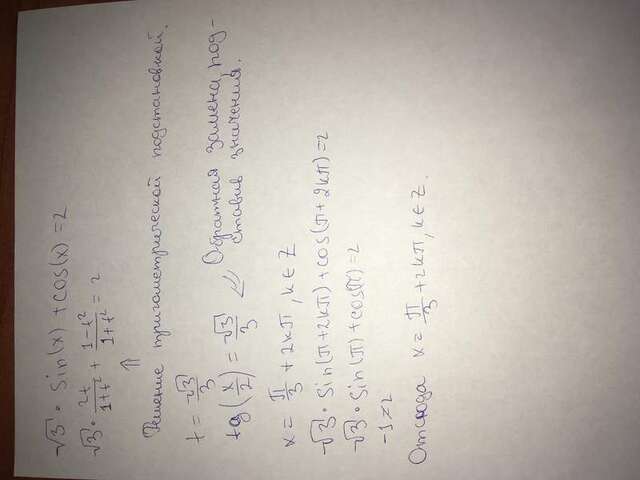 √3 · sin(x) + cos(x) = 2
√3 · 2t/(1+t²) + (1-t²)/(1+t²) = 2
⇑
Решение тригометрической подстановкой.
t = √3/3
tg(x/2) = √3/3 ⇐ Обратная замена, под-
ставив значения.
x = π/3 + 2kπ, k ∈ Z
√3 · sin(π + 2kπ) + cos(π + 2kπ) = 2
√3 · sin(π) + cos(π) = 2
-1 ≠ 2
Отсюда x = π/3 + 2kπ, k ∈ Z.